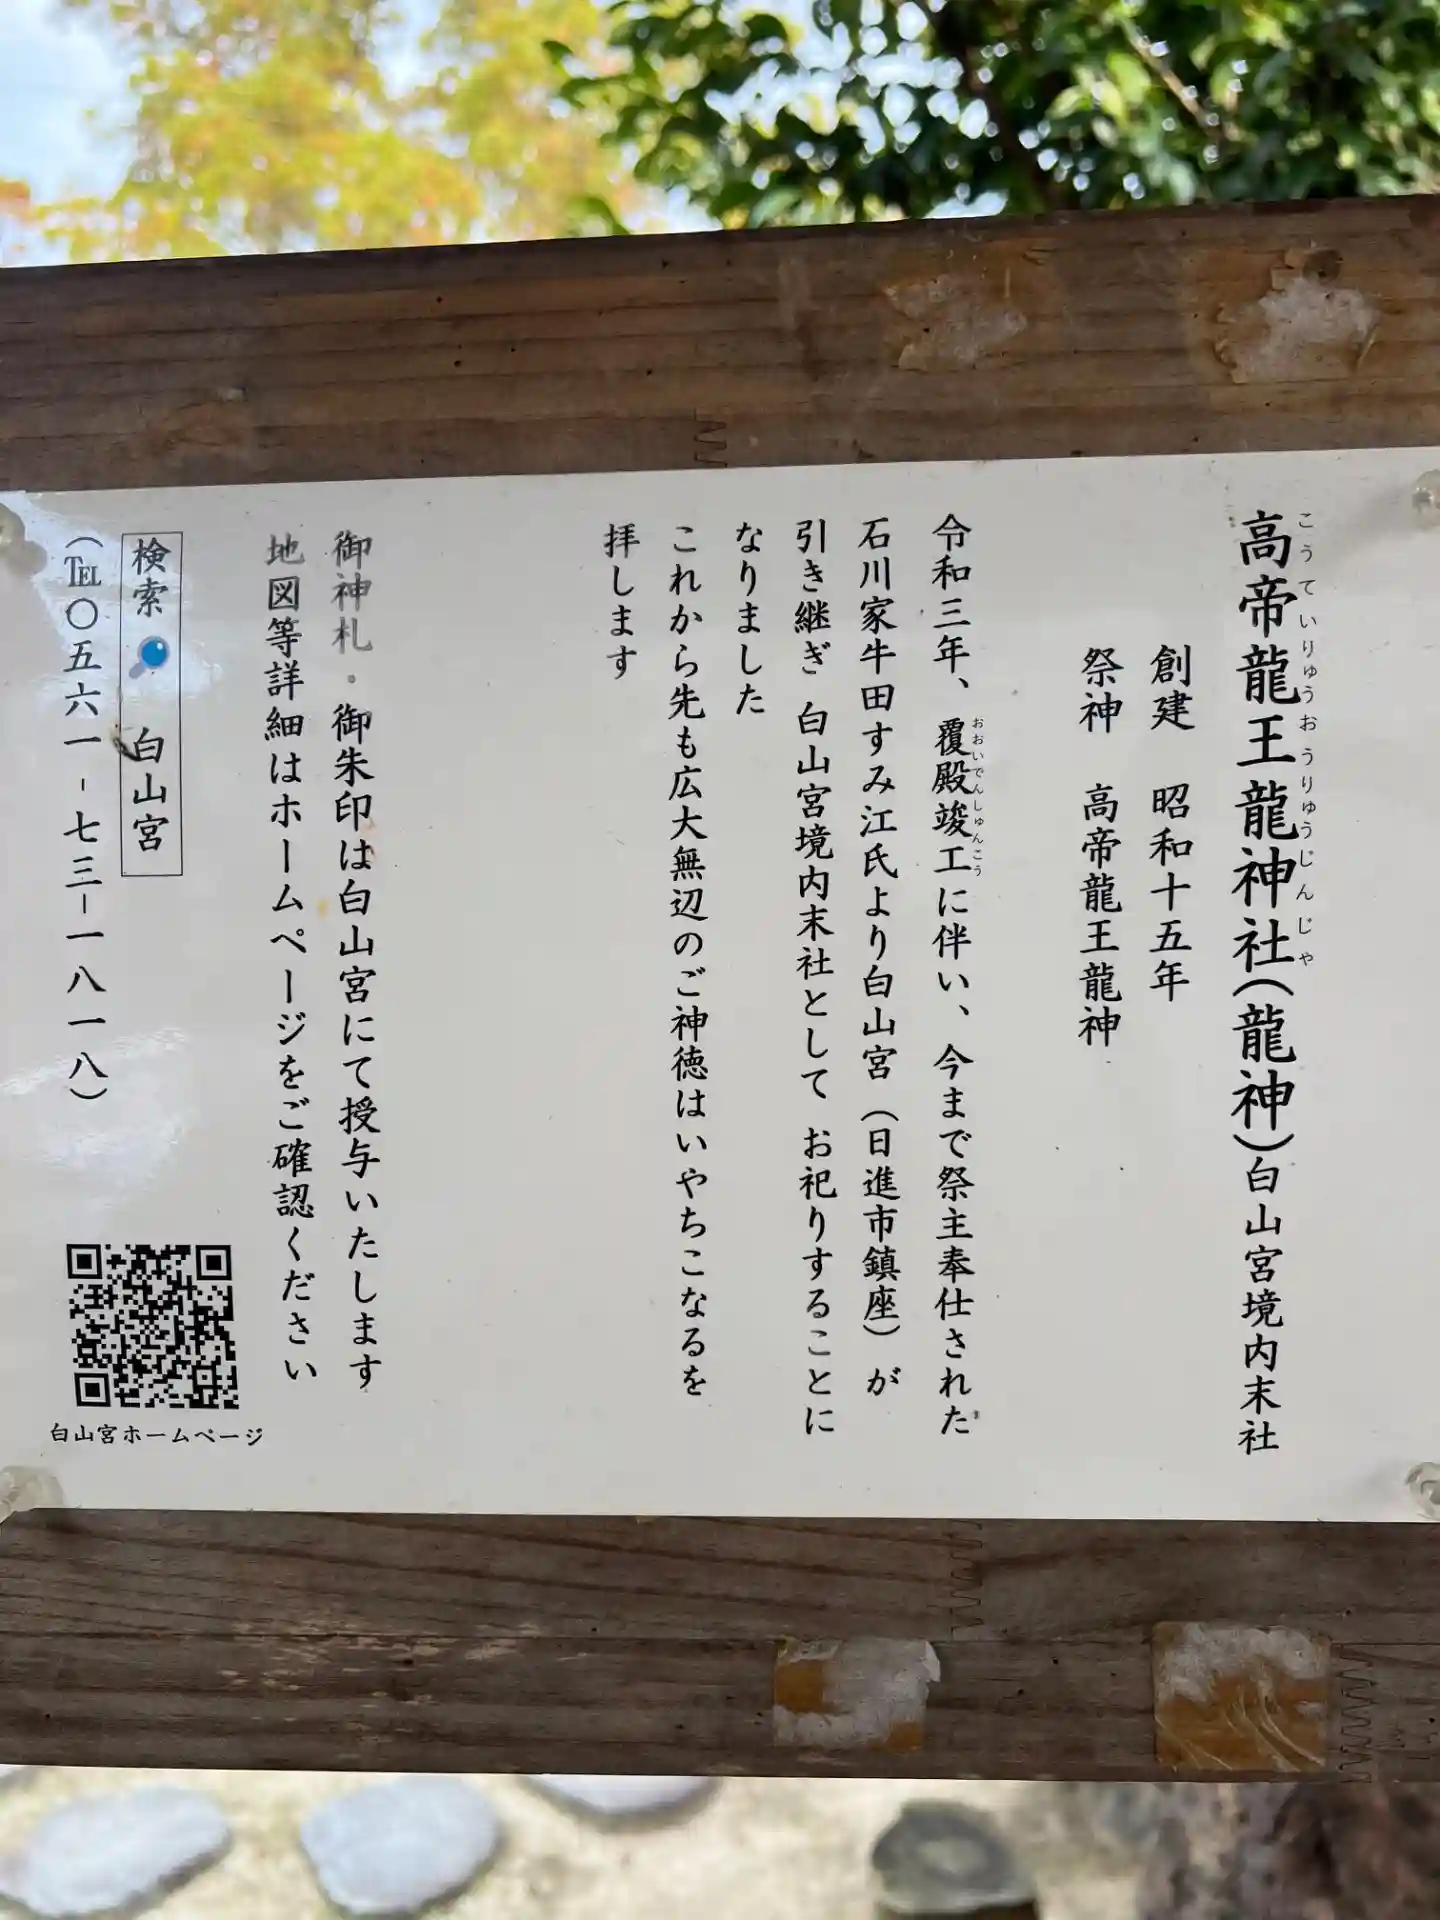 高帝龍王龍神社(龍神)白山宮境内末社
こうていりゅうおうりゅうじんじゃ
創建 昭和十五年
祭神 高帝龍王龍神
令和三年、覆殿竣工に伴い、今まで祭主奉仕された
おおいでんしゅんこう
石川家牛田すみ江氏より白山宮(日進市鎮座)が
引き継ぎ 白山宮境内末社として お祀りすることに
なりました
これから先も広大無辺のご神徳はいやちこなるを
拝します
御神札・御朱印は白山宮にて授与いたします
地図等詳細はホームページをご確認ください
検索 白山宮
(℡〇五六一-七三-一八一八)
白山宮ホームページ